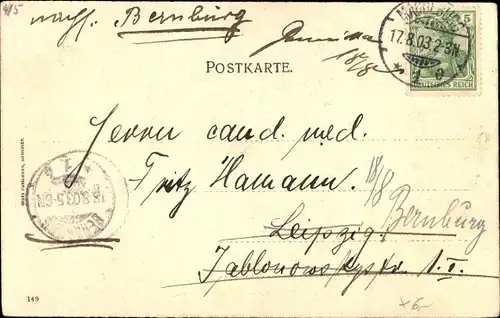 nachs. Bernburg
18/8
5
17.8.03.2-3N
DEUTSCHES REICH
POSTKARTE.
Herrn cand. med.
Fritz Hamann.
18/8
18.8.03.5-6
Leipzig.
Bernburg
Jablonowskystr. 1. I.
149